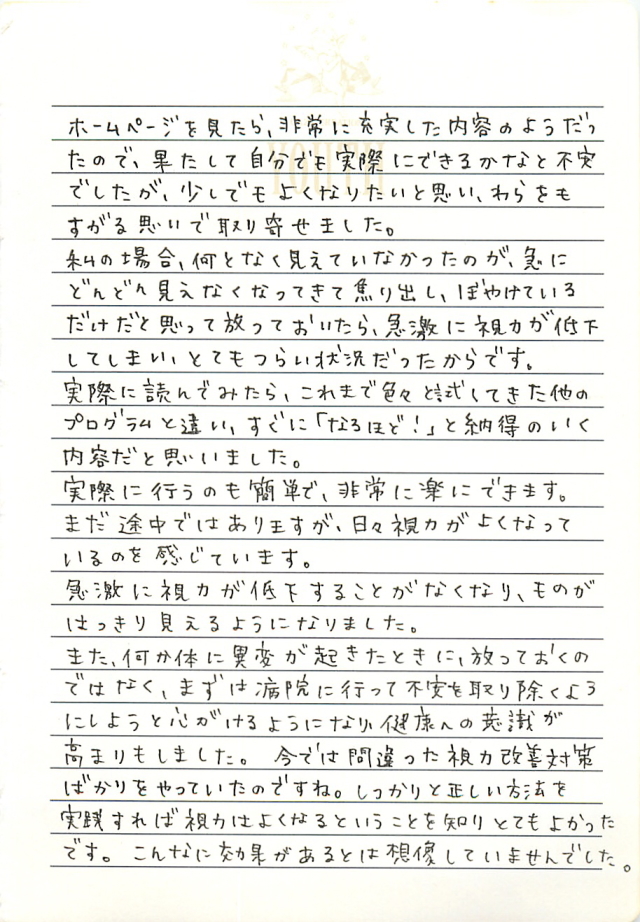 ホームページを見たら、非常に充実した内容のようだっ
たので、果たして自分でも実際にできるかなと不安
でしたが、少しでもよくなりたいと思い、わらをも
すがる思いで取り寄せました。
私の場合、何となく見えていなかったのが、急に
どんどん見えなくなってきて焦り出し、ぼやけている
だけだと思って放っておいたら、急激に視力が低下
してしまい、とてもつらい状況だったからです。
実際に読んでみたら、これまで色々と試してきた他の
プログラムと違い、すぐに「なるほど!」と納得のいく
内容だと思いました。
実際に行うのも簡単で、非常に楽にできます。
まだ途中ではありますが、日々視力がよくなって
いるのを感じています。
急激に視力が低下することがなくなり、ものが
はっきり見えるようになりました。
また、何か体に異変が起きたときに、放っておくの
ではなく、まずは病院に行って不安を取り除くよう
にしようと心がけるようになり、健康への意識が
高まりもしました。 今では間違った視力改善対策
ばかりをやっていたのですね。しっかりと正しい方法を
実践すれば視力はよくなるということを知りとてもよかった
です。こんなに効果があるとは想像していませんでした。